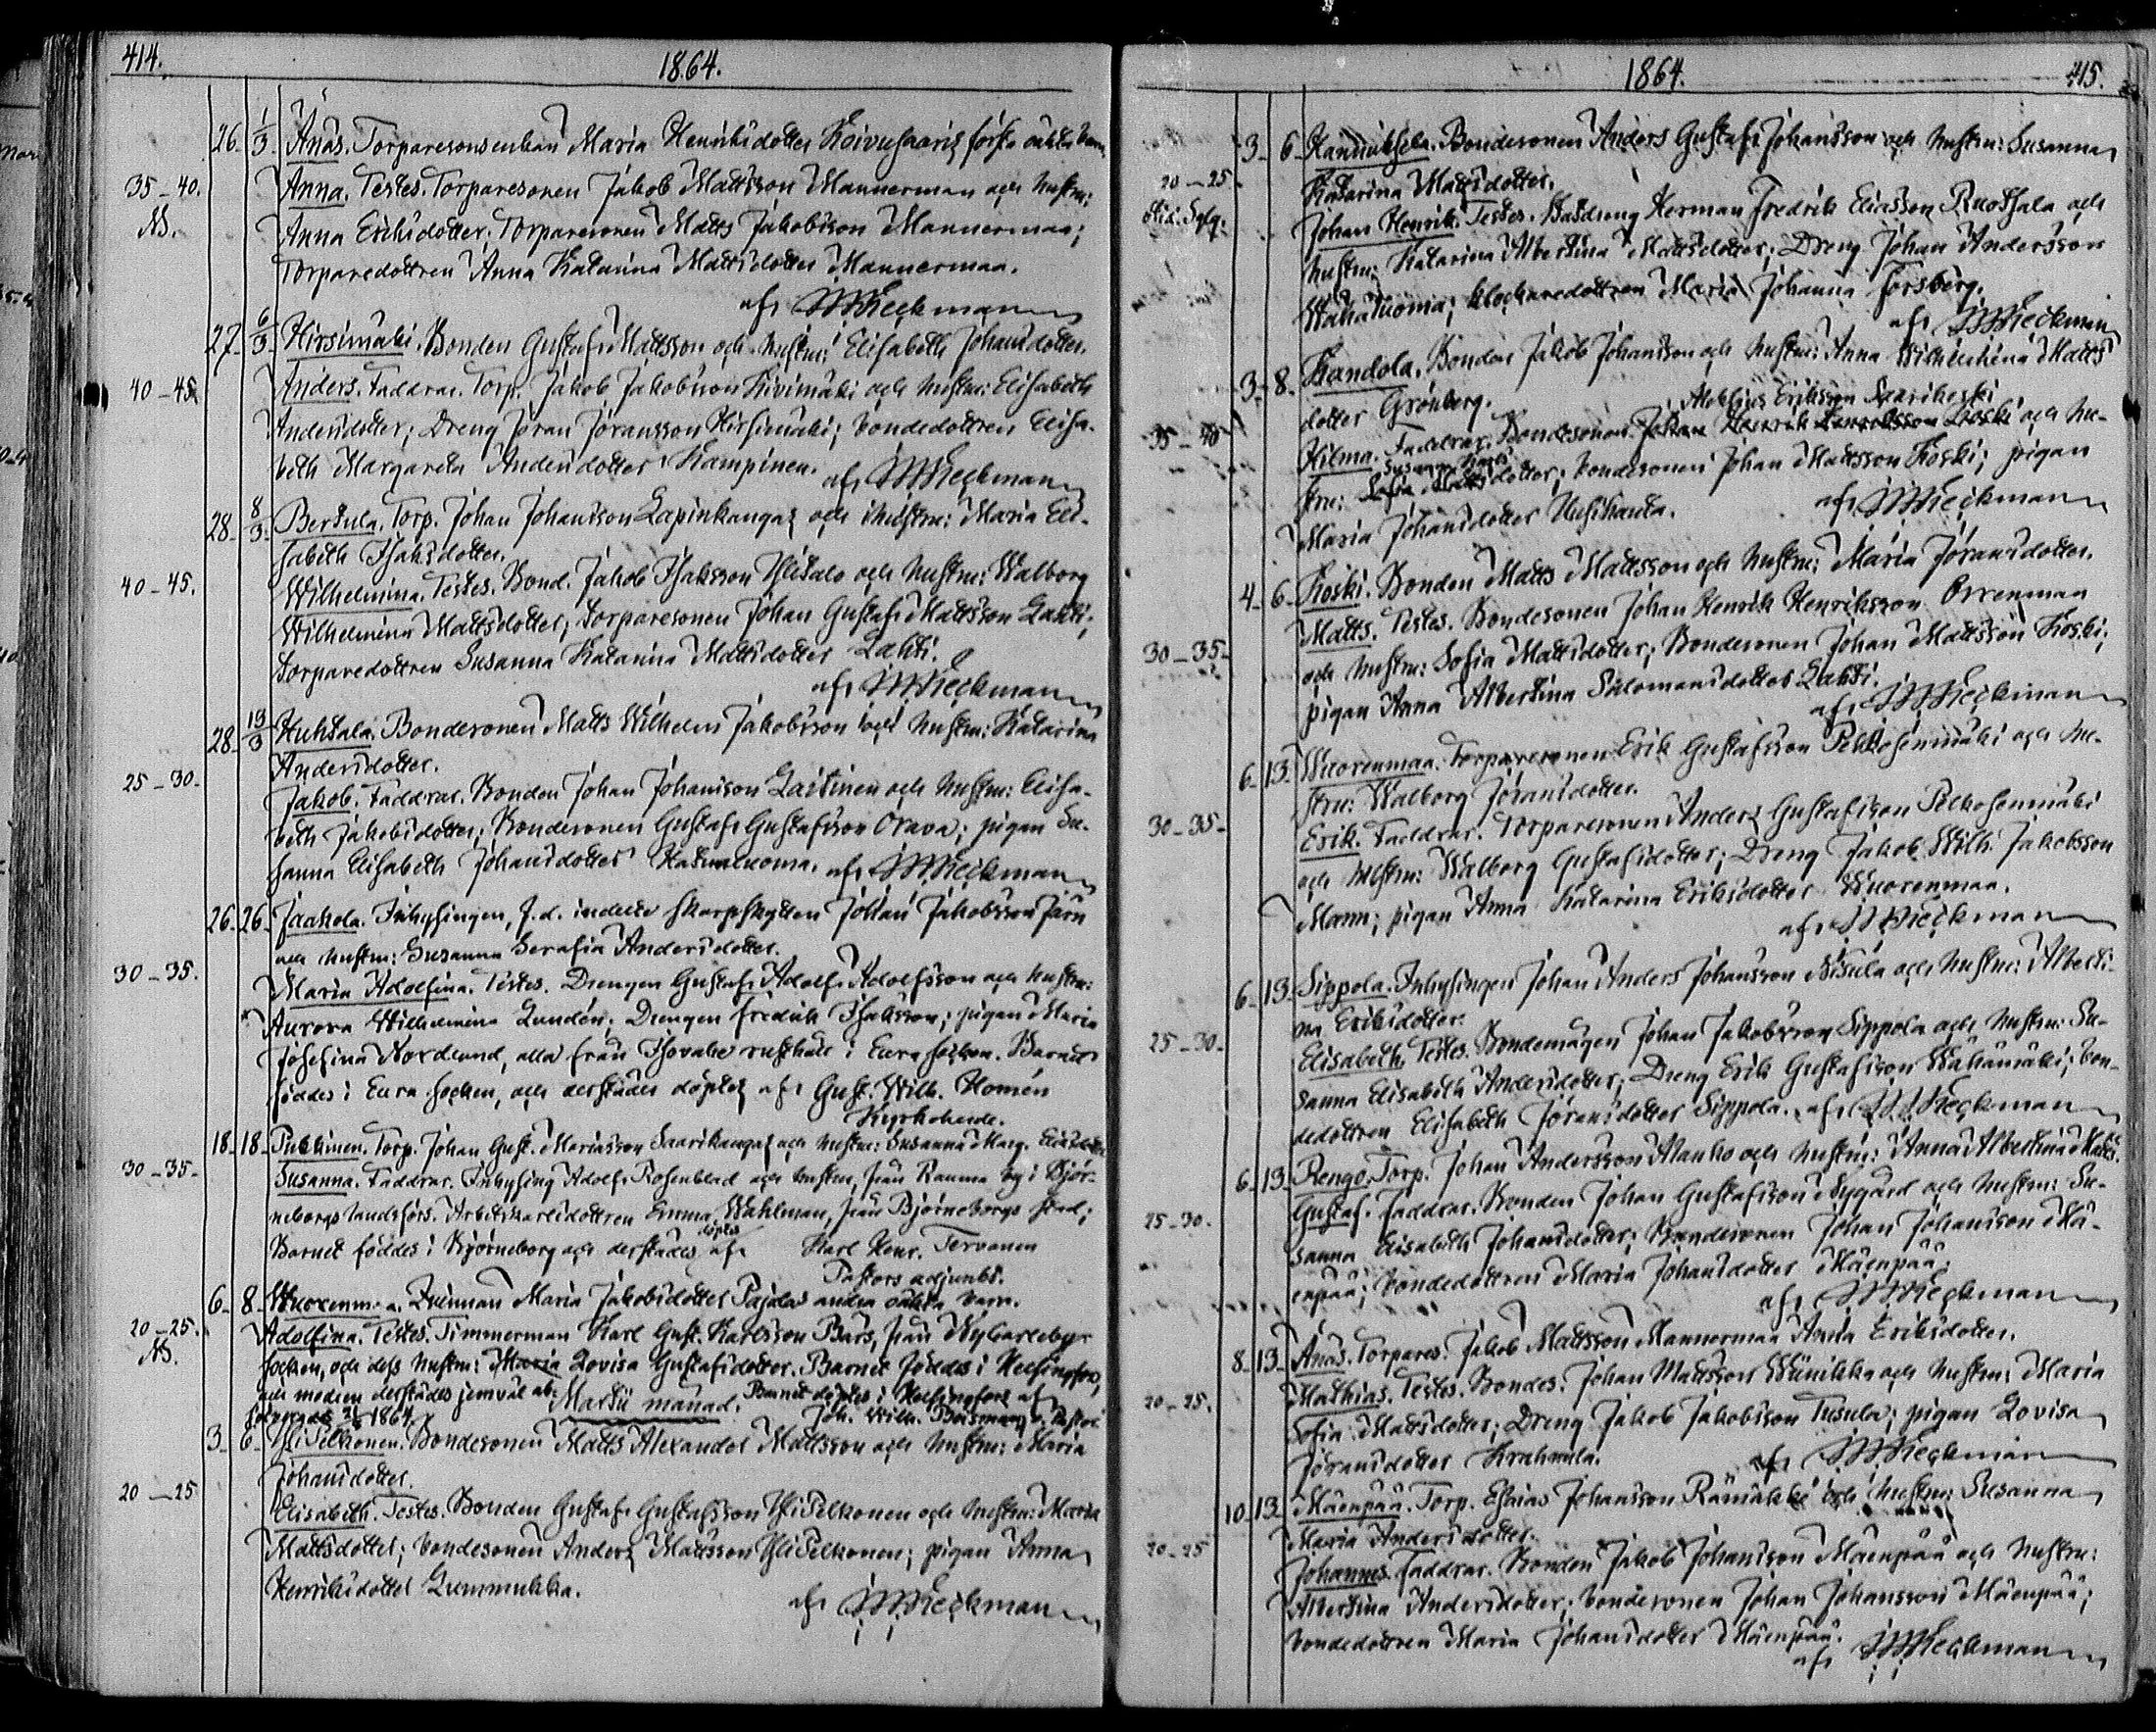 414. 1864.
26. 1/3 Anäs. Torparesonsenkan Maria Henriksdotter Koivusaaris första oäkta barn
35–40. Anna. Testes. Torparesonen Jakob Mattsson Mannermaa och hustru:
Anna Eriksdotter; Torparesonen Matts Jakobsson Mannermaa;
Torparedottren Anna Katarina Mattsdotter Mannermaa.
af Heckman
27. 6/3 Hirsimäki. Bonden Gustaf Mattsson och hustru: Elisabeth Johansdotter.
40–45 Anders. Faddrar. Torp. Jakob Jakobsson Kivimäki och hustru: Elisabeth
Andersdotter; Dreng Jöran Jöransson Hirsimäki; bondedottren Elisa-
beth Margareta Andersdotter Kampinen. af Heckman
28. 8/3 Bertula. Torp. Johan Johansson Lapinkangas och hustru: Maria Eli-
sabeth Isaksdotter.
40–45. Wilhelmina. Testes. Bond. Jakob Isaksson Ylisalo och hustru: Walborg
Wilhelmina Mattsdotter; Torparesonen Johan Gustaf Mattsson Lahti;
torparedottren Susanna Katarina Mattsdotter Lahti.
af Heckman
28. 13/3 Huhtala. Bondesonen Matts Wilhelm Jakobsson och hustru: Katarina
Andersdotter.
25–30. Jakob. Faddrar. Bonden Johan Johansson Laitinen och hustru: Elisa-
beth Jakobsdotter; Bondesonen Gustaf Gustafsson Orava; pigan Su-
sanna Elisabeth Johansdotter Hatunluoma. af Heckman
26. 26. Jaakola. Inhysingen, f.d. indelte skarpskytten Johan Jakobsson Järn
och hustru: Susanna Serafia Andersdotter.
30–35. Maria Adolfina. Testes. Drengen Gustaf Adolf Adolfsson och hustru:
Aurora Wilhelmina Lundén; Drengen Fredrik Isaksson; pigan Maria
Josefina Nordlund, alla från rusthåll i Eura socken. Barnet
föddes i Eura socken, och derstädes döptes af Gust. Wilh. Homén
Kyrkoherde.
18. 18. Pukkinen. Torp. Johan Gust. Mariasson Saarikangas och hustru: Susanna Marg.
30–35. Susanna. Faddrar. Inhysing Adolf Rosenblad och hustru, från Rauma by i Björ-
neborgs landsförs. Arbetskarlsdottren Emma Wahlman, från Björneborgs stad;
Barnet föddes i Björneborg och derstädes döptes af Karl Henr. Tervonen
Pastors adjunkt.
6. 8. Wuorenmaa. Qvinnan Maria Jakobsdotter Pajalas andra oäkta barn.
20–25. Adolfina. Testes. Timmerman Karl Gust. Karlsson Bärs, från Nykarleby
socken, och dess hustru: Maria Lovisa Gustafsdotter. Barnet föddes i Helsingfors,
och modren derstädes jemväl Martii månad. Barnet döptes i Helsingfors af
1864. Joh. Wilh. v. Pastor
3. 6. Ylipelkonen. Bondesonen Matts Alexander Mattsson och hustru: Maria
Johansdotter.
20–25 Elisabeth. Testes. Bonden Gustaf Gustafsson Ylipelkonen och hustru: Maria
Mattsdotter; bondesonen Anders Mattsson Ylipelkonen; pigan Anna
Henriksdotter Lummukka.
af Heckman
1864. 415.
3. 6. Kannuksela. Bondesonen Anders Gustaf Johansson och hustru: Susanna
20–25. Katarina Mattsdotter.
Johan Henrik. Testes. Herman Fredrik Eliasson Ruotsala och
hustru: Katarina Albertina Mattsdotter; Dreng Johan Andersson
Wähätuoma; klockaredottren Maria Johanna Forsberg.
af Heckman
3. 8. Kandola. Bonden Jakob Johansson och hustru: Anna Wilhelmina Matts
dotter Grönberg. Eriksson Saarikoski
35–40 Hilma. Faddrar. Bondesonen Johan Henrik Henriksson och hu-
stru: Sofia Mattsdotter; bondesonen Johan Mattsson Koski; pigan
Maria Johansdotter Uusihanta.
af Heckman
4. 6. Koski. Bonden Matts Mattsson och hustru: Maria Jöransdotter.
30–35. Matts. Testes. Bondesonen Johan Henrik Henriksson Orrenmaa
och hustru: Sofia Mattsdotter; Bondesonen Johan Mattsson Koski;
pigan Anna Albertina Salomansdotter Lahti.
af Heckman
6. 13. Wuorenmaa. Torparesonen Erik Gustafsson Pelkosenmäki och hu-
stru: Walborg Jöransdotter.
30–35. Erik. Faddrar. Torparesonen Anders Gustafsson Pelkosenmäki
och hustru: Walborg Gustafsdotter; Dreng Jakob Wilh. Jakobsson
Mann; pigan Anna Katarina Eriksdotter Wuorenmaa.
af Heckman
6. 13. Sippola. Inhysingen Johan Anders Johansson Nisula och hustru: Alberti-
na Eriksdotter.
25–30. Elisabeth. Testes. Bondemågen Johan Jakobsson Sippola och hustru: Su-
sanna Elisabeth Andersdotter; Dreng Erik Gustafsson Wähämäki; bon-
dedottren Elisabeth Jöransdotter Sippola. af Heckman
6. 13. Rengo. Torp. Johan Andersson Alanko och hustru: Anna Albertina Mattsd.
25–30. Gustaf. Faddrar. Bonden Johan Gustafsson Nygård och hustru: Su-
sanna Elisabeth Johansdotter; Bondesonen Johan Johansson Mä-
enpää; bondedottren Maria Johansdotter Mäenpää.
af Heckman
8. 13. Anäs. Torpares. Jakob Mattsson Mannermaa Anna Eriksdotter.
20–25. Mathias. Testes. Bondes. Johan Mattsson Wiinikka och hustru: Maria
Sofia Mattsdotter; Dreng Jakob Jakobsson Tusula; pigan Lovisa
Jöransdotter Krakunla.
af Heckman
10. 13. Mäenpää. Torp. Esaias Johansson Rämäkkö och hustru: Susanna
Maria Andersdotter.
20–25 Johannes. Faddrar. Bonden Jakob Johansson Mäenpää och hustru:
Albertina Andersdotter; bondesonen Johan Johansson Mäenpää;
bondedottren Maria Johansdotter Mäenpää.
af Heckman